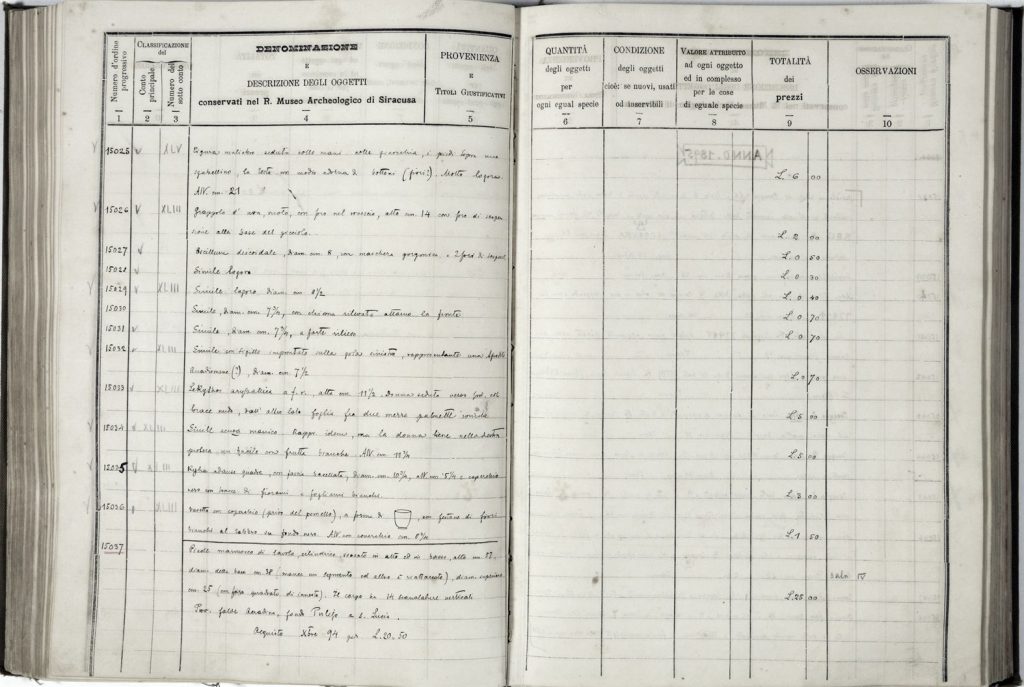 Numero d'ordine progressivo
CLASSIFICAZIONE del
Conto principale
Numero del sotto conto
DENOMINAZIONE
E
DESCRIZIONE DEGLI OGGETTI
conservati nel R. Museo Archeologico di Siracusa
PROVENIENZA
E
TITOLI GIUSTIFICATIVI
1 2 3 4 5
15025 XLV Figura muliebre seduta colle mani sulle ginocchia, i piedi sopra uno
sgabellino, la testa con modio adorna di bottoni (fiori?). Molto logora
Alt. cm. 21
15026 XLIII Grappolo d'uva, vuoto, con foro nel rovescio, alto cm. 14 con foro di sospen
sione alla base del picciolo.
15027 Oscillum discoidale, diam. cm. 8, con maschera gorgonica e 2 fori di sospens.
15028 Simile logoro
15029 XLIII Simile logoro diam. cm 8½
15030 Simile, diam. cm. 7¾, con chioma rilevata attorno la fronte
15031 Simile, diam. cm. 7¾, a forte rilievo
15032 XLIII Simile con sigillo improntato sulla gota sinistra, rappresentante una
Anadiomene (?), diam. cm 7½
15033 XLIII Lekythos aryballica a f. r., alta cm. 11½. Donna seduta verso sin. col
braccio nudo, dall'altro lato foglia fra due mezze palmette
15034 XLIII Simile senza manico. Rappr. idem, ma la donna tiene nella destra
protesa un bacile con frutta bianche. Alt. cm 11¾
15035 XLIII con fascia baccellata, diam. cm. 10¾, alt. cm 5¼ e coperchio
nero con tracce di fiorami e fogliami bianchi
15036 XLIII Vasetto con coperchio (privo del pomello), a forma di , con festone di fiori
bianchi al labbro su fondo nero. Alt. con coperchio cm 8¾
15037 Piede marmoreo di tavola, cilindrico, scavato in alto ed in basso, alto cm 87.
diam. della base cm. 38 (manca un segmento ed altro è riattaccato), diam. superiore
cm. 25 (con foro quadrato di innesto). Il corpo ha 14 scanalature verticali
Prov. falde Acradina, fondo a S. Lucia.
Acquisto Xbre 94 per L. 20.50
QUANTITÀ
degli oggetti
per
ogni egual specie
6
CONDIZIONE
degli oggetti
cioè: se nuovi, usati
od inservibili
7
VALORE ATTRIBUITO
ad ogni oggetto
ed in complesso
per le cose
di eguale specie
8
TOTALITÀ
dei
prezzi
9
OSSERVAZIONI
10
L. 6 00
L. 2 00
L. 0 50
L. 0 30
L. 0 40
L. 0 70
L. 0 70
L. 0 70
L. 5 00
L. 5 00
L. 3 00
L. 1 50
L. 25 00
sala IV